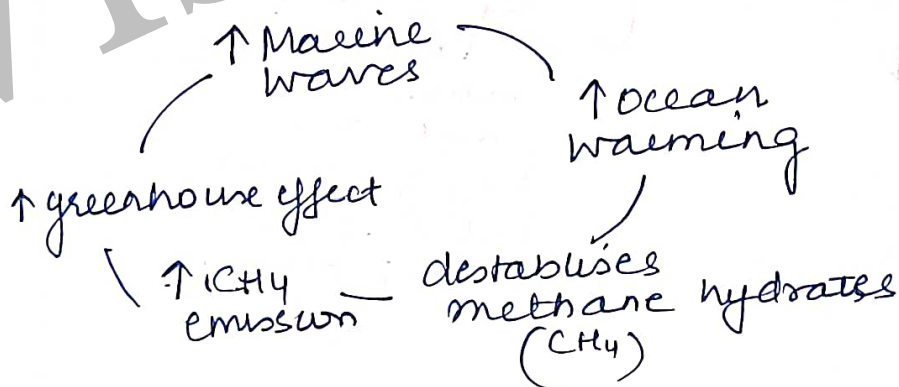 ↑ Marine
waves
↑ ocean
warming
destablises
methane hydrates
(CH4)
↑ CH4
emission
↑ greenhouse effect